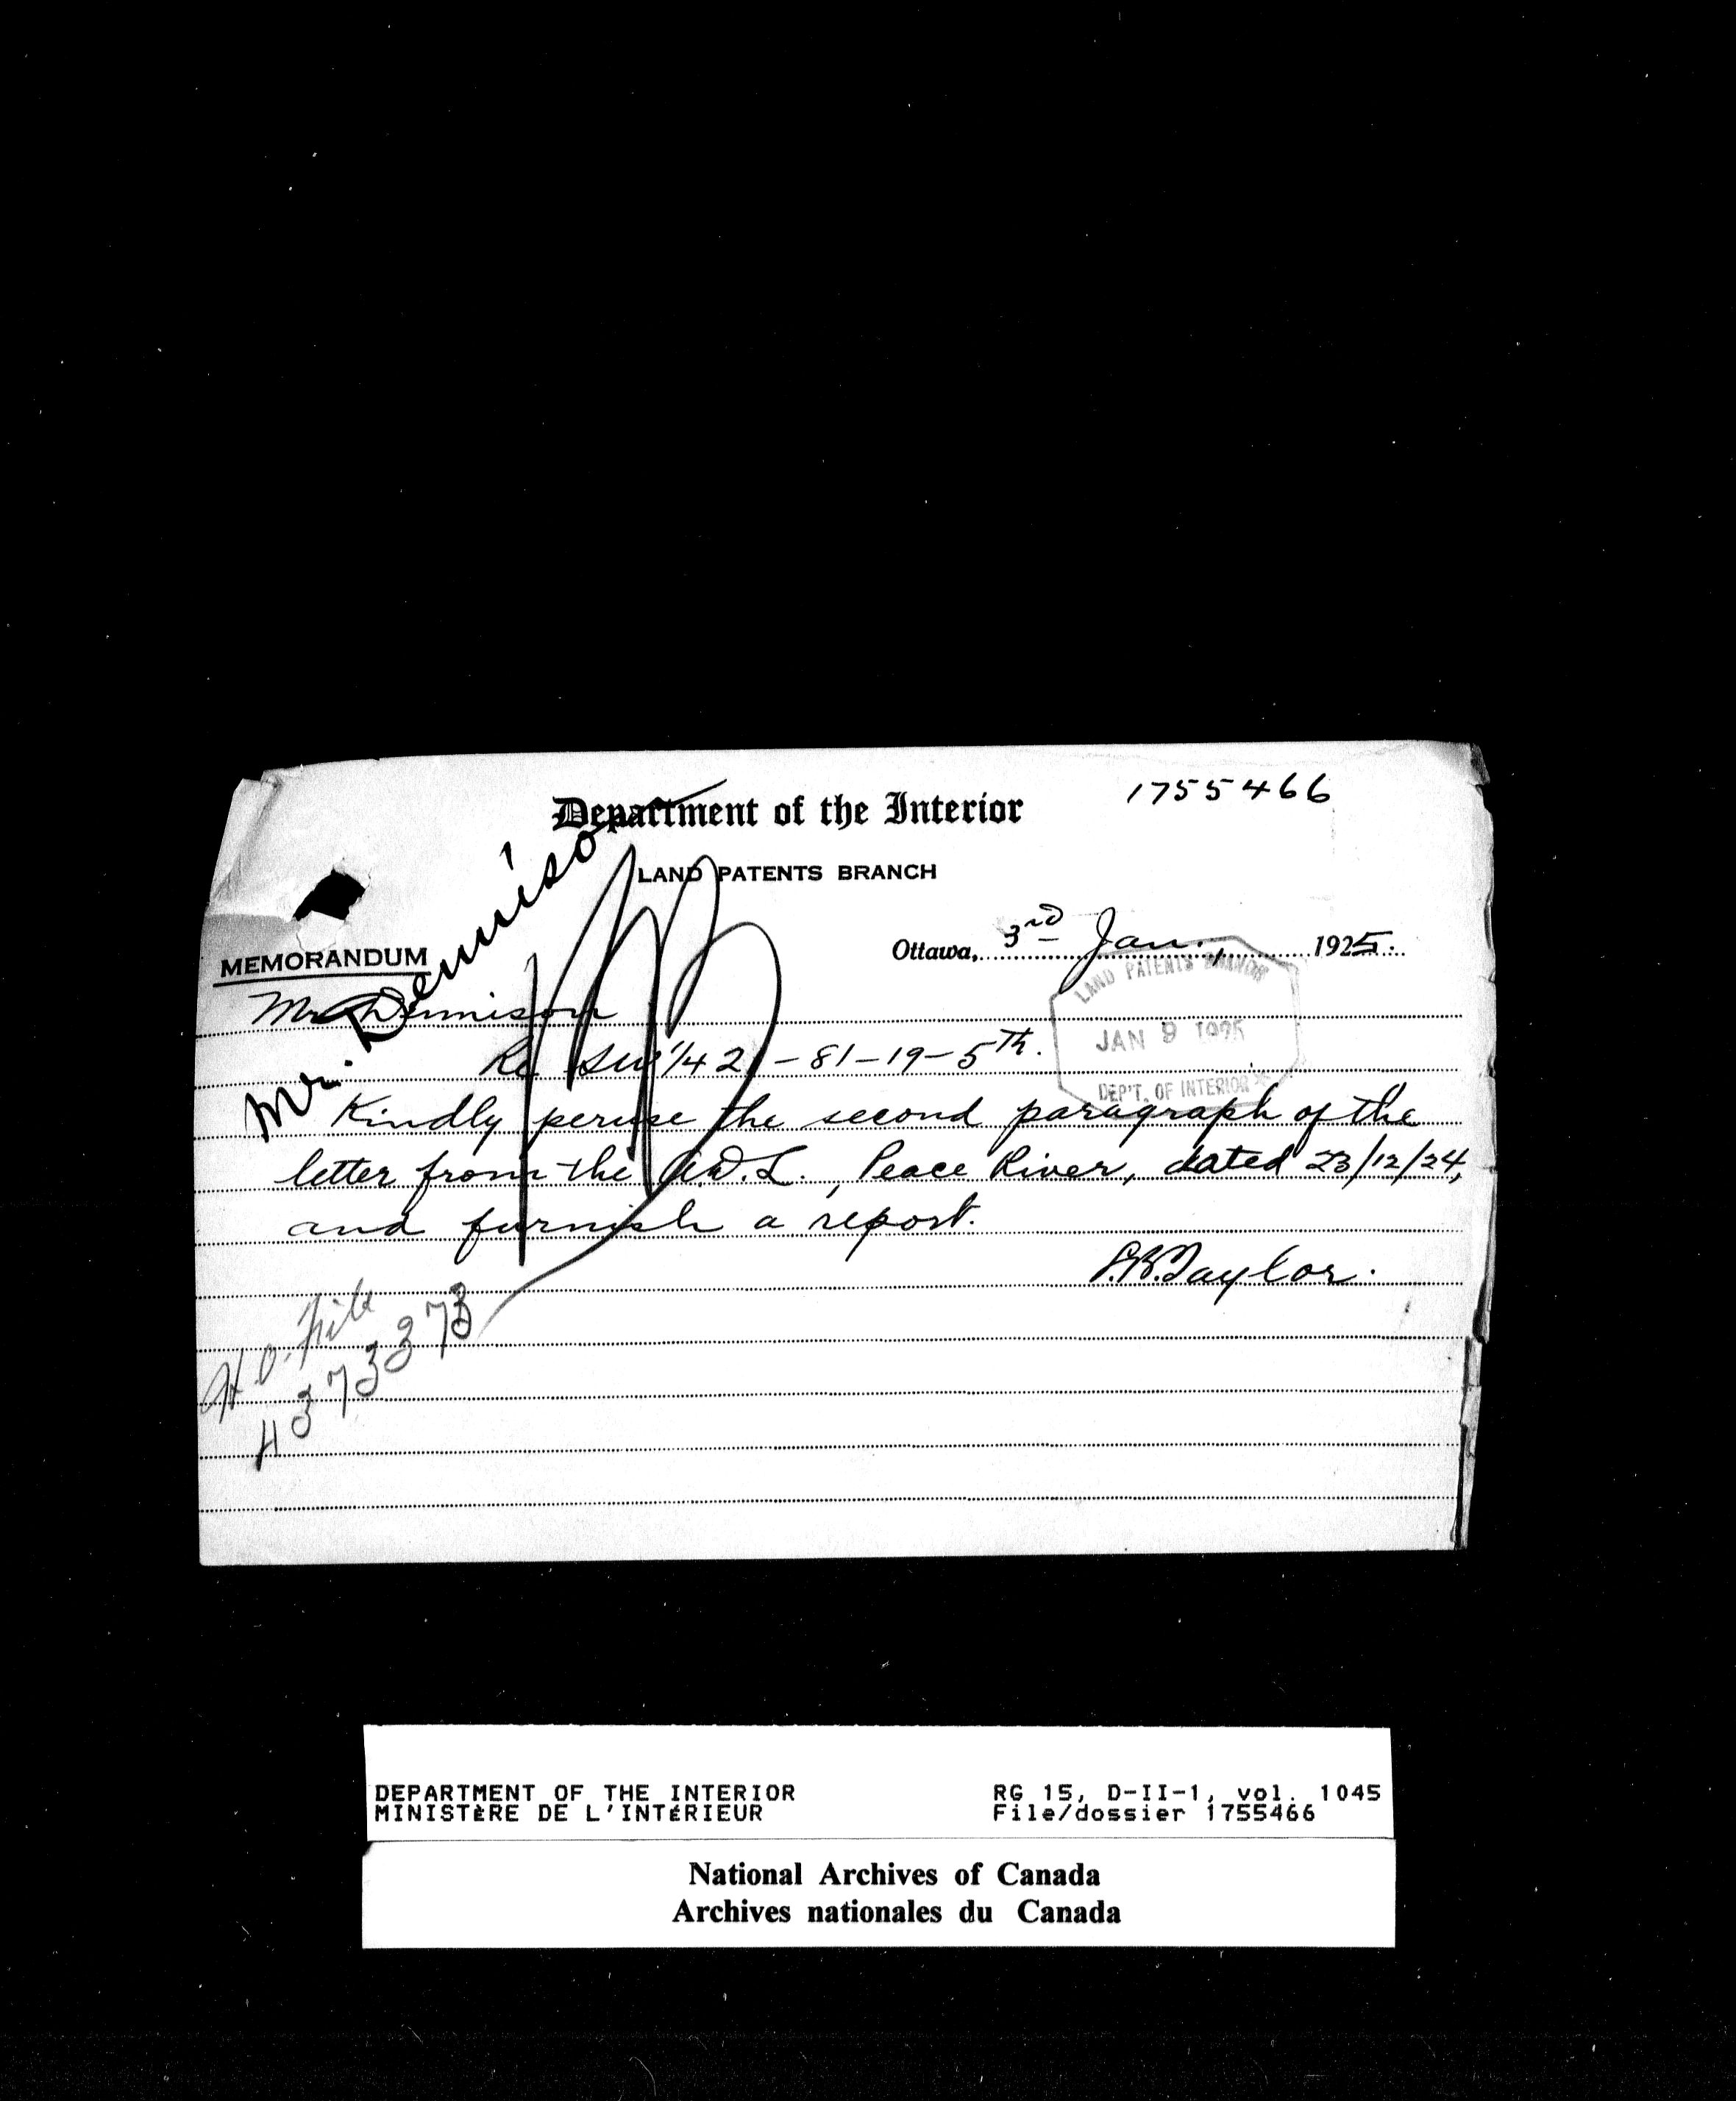 1755466
Department of the Interior
LAND PATENTS BRANCH
Ottawa, 3rd Jan., 1925.
MEMORANDUM
Mr. Dennison
Mr. Dennison
LAND PATENTS BRANCH
JAN 9 1925
DEP'T. OF INTERIOR
Re SW 1/4 2 - 81-19-5th.
Kindly peruse the second paragraph of the
letter from the A.D.L., Peace River, dated 23/12/24,
and furnish a report.
Taylor.
H.O. File
4373373
DEPARTMENT OF THE INTERIOR RG 15, D-II-1, vol. 1045
MINISTÈRE DE L'INTÉRIEUR File/dossier 1755466
National Archives of Canada
Archives nationales du Canada